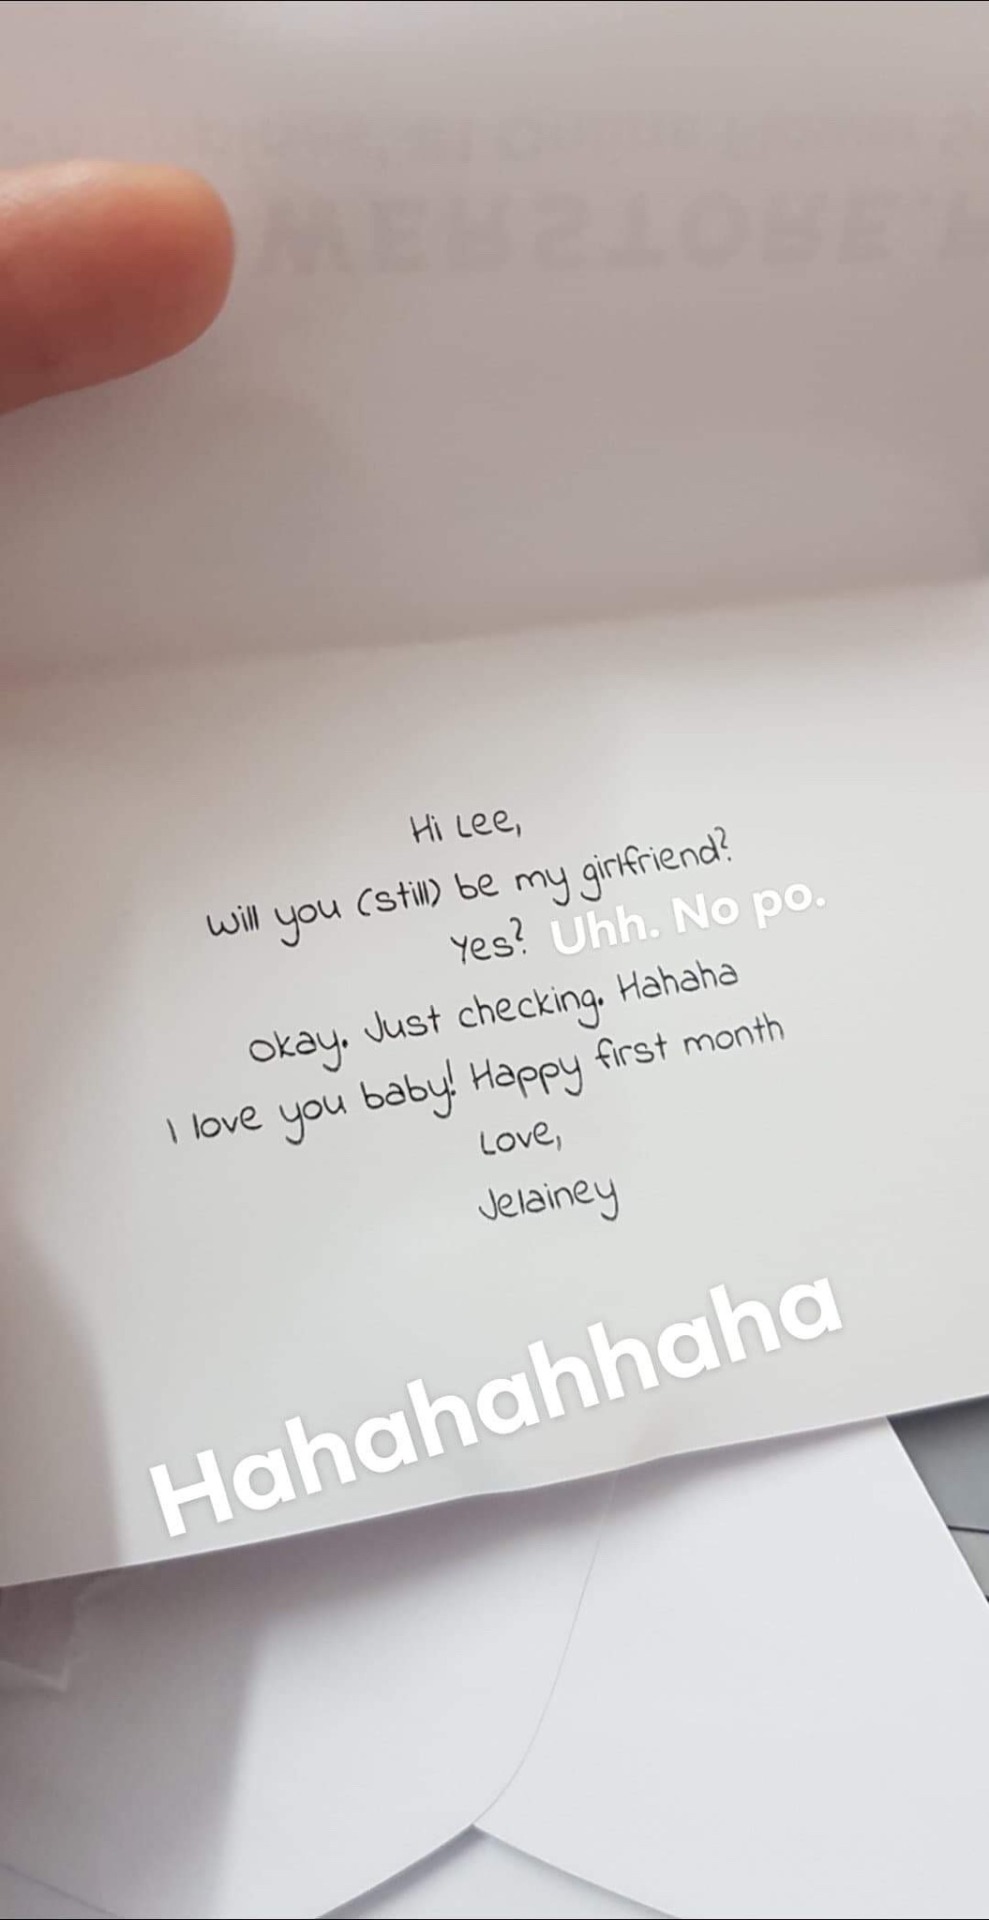 WERSTORE.
Hi Lee,
Will you (still) be my girlfriend?
Yes? Uhh. No po.
Okay. Just checking. Hahaha
I love you baby! Happy first month
Love,
Jelainey
Hahahahhaha